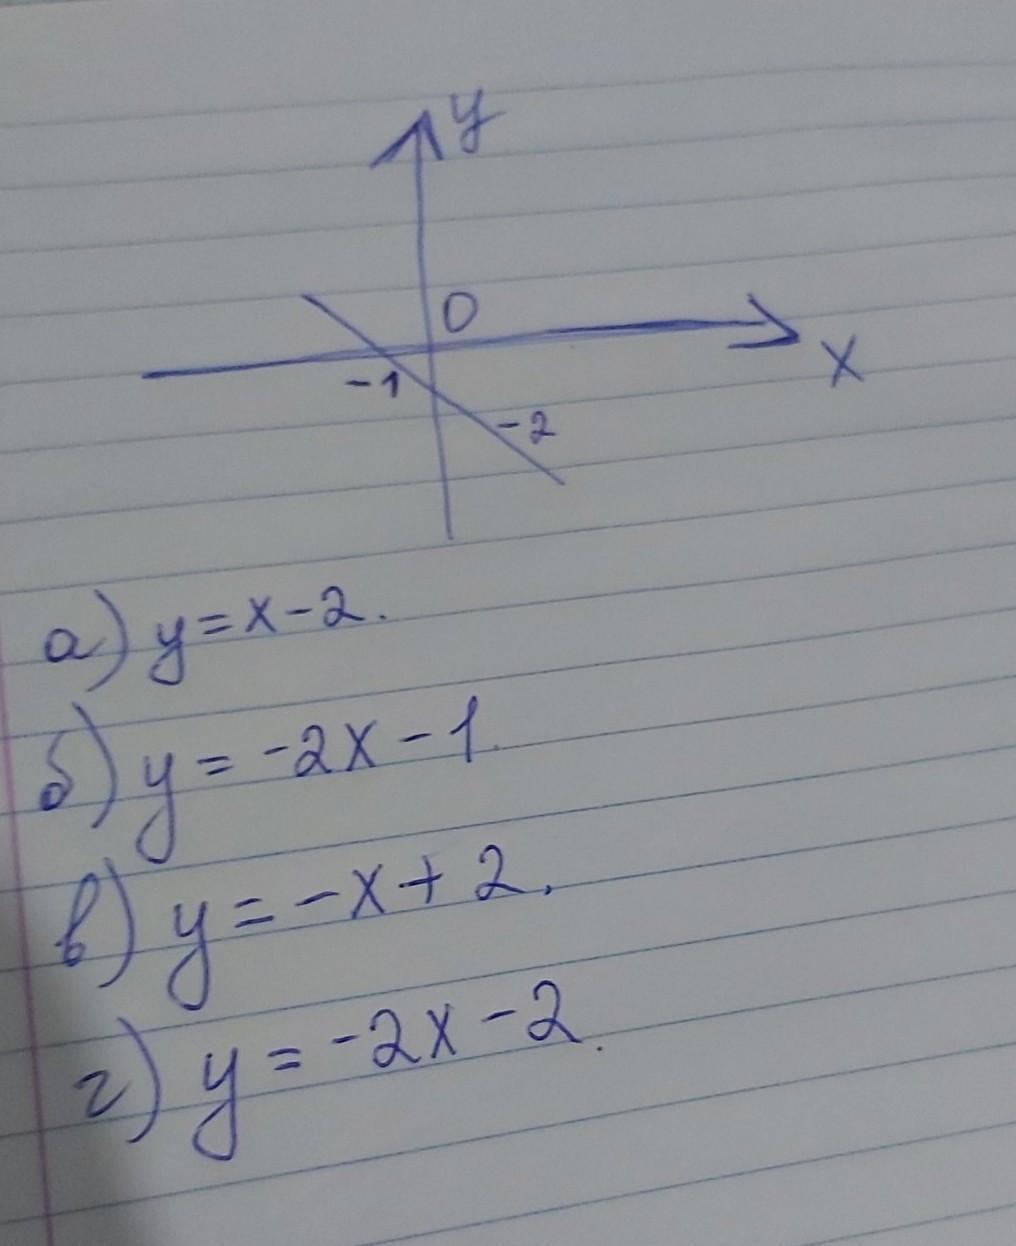 y
0
x
-1
-2
а) y = x - 2.
б) y = -2x - 1.
в) y = -x + 2.
г) y = -2x - 2.